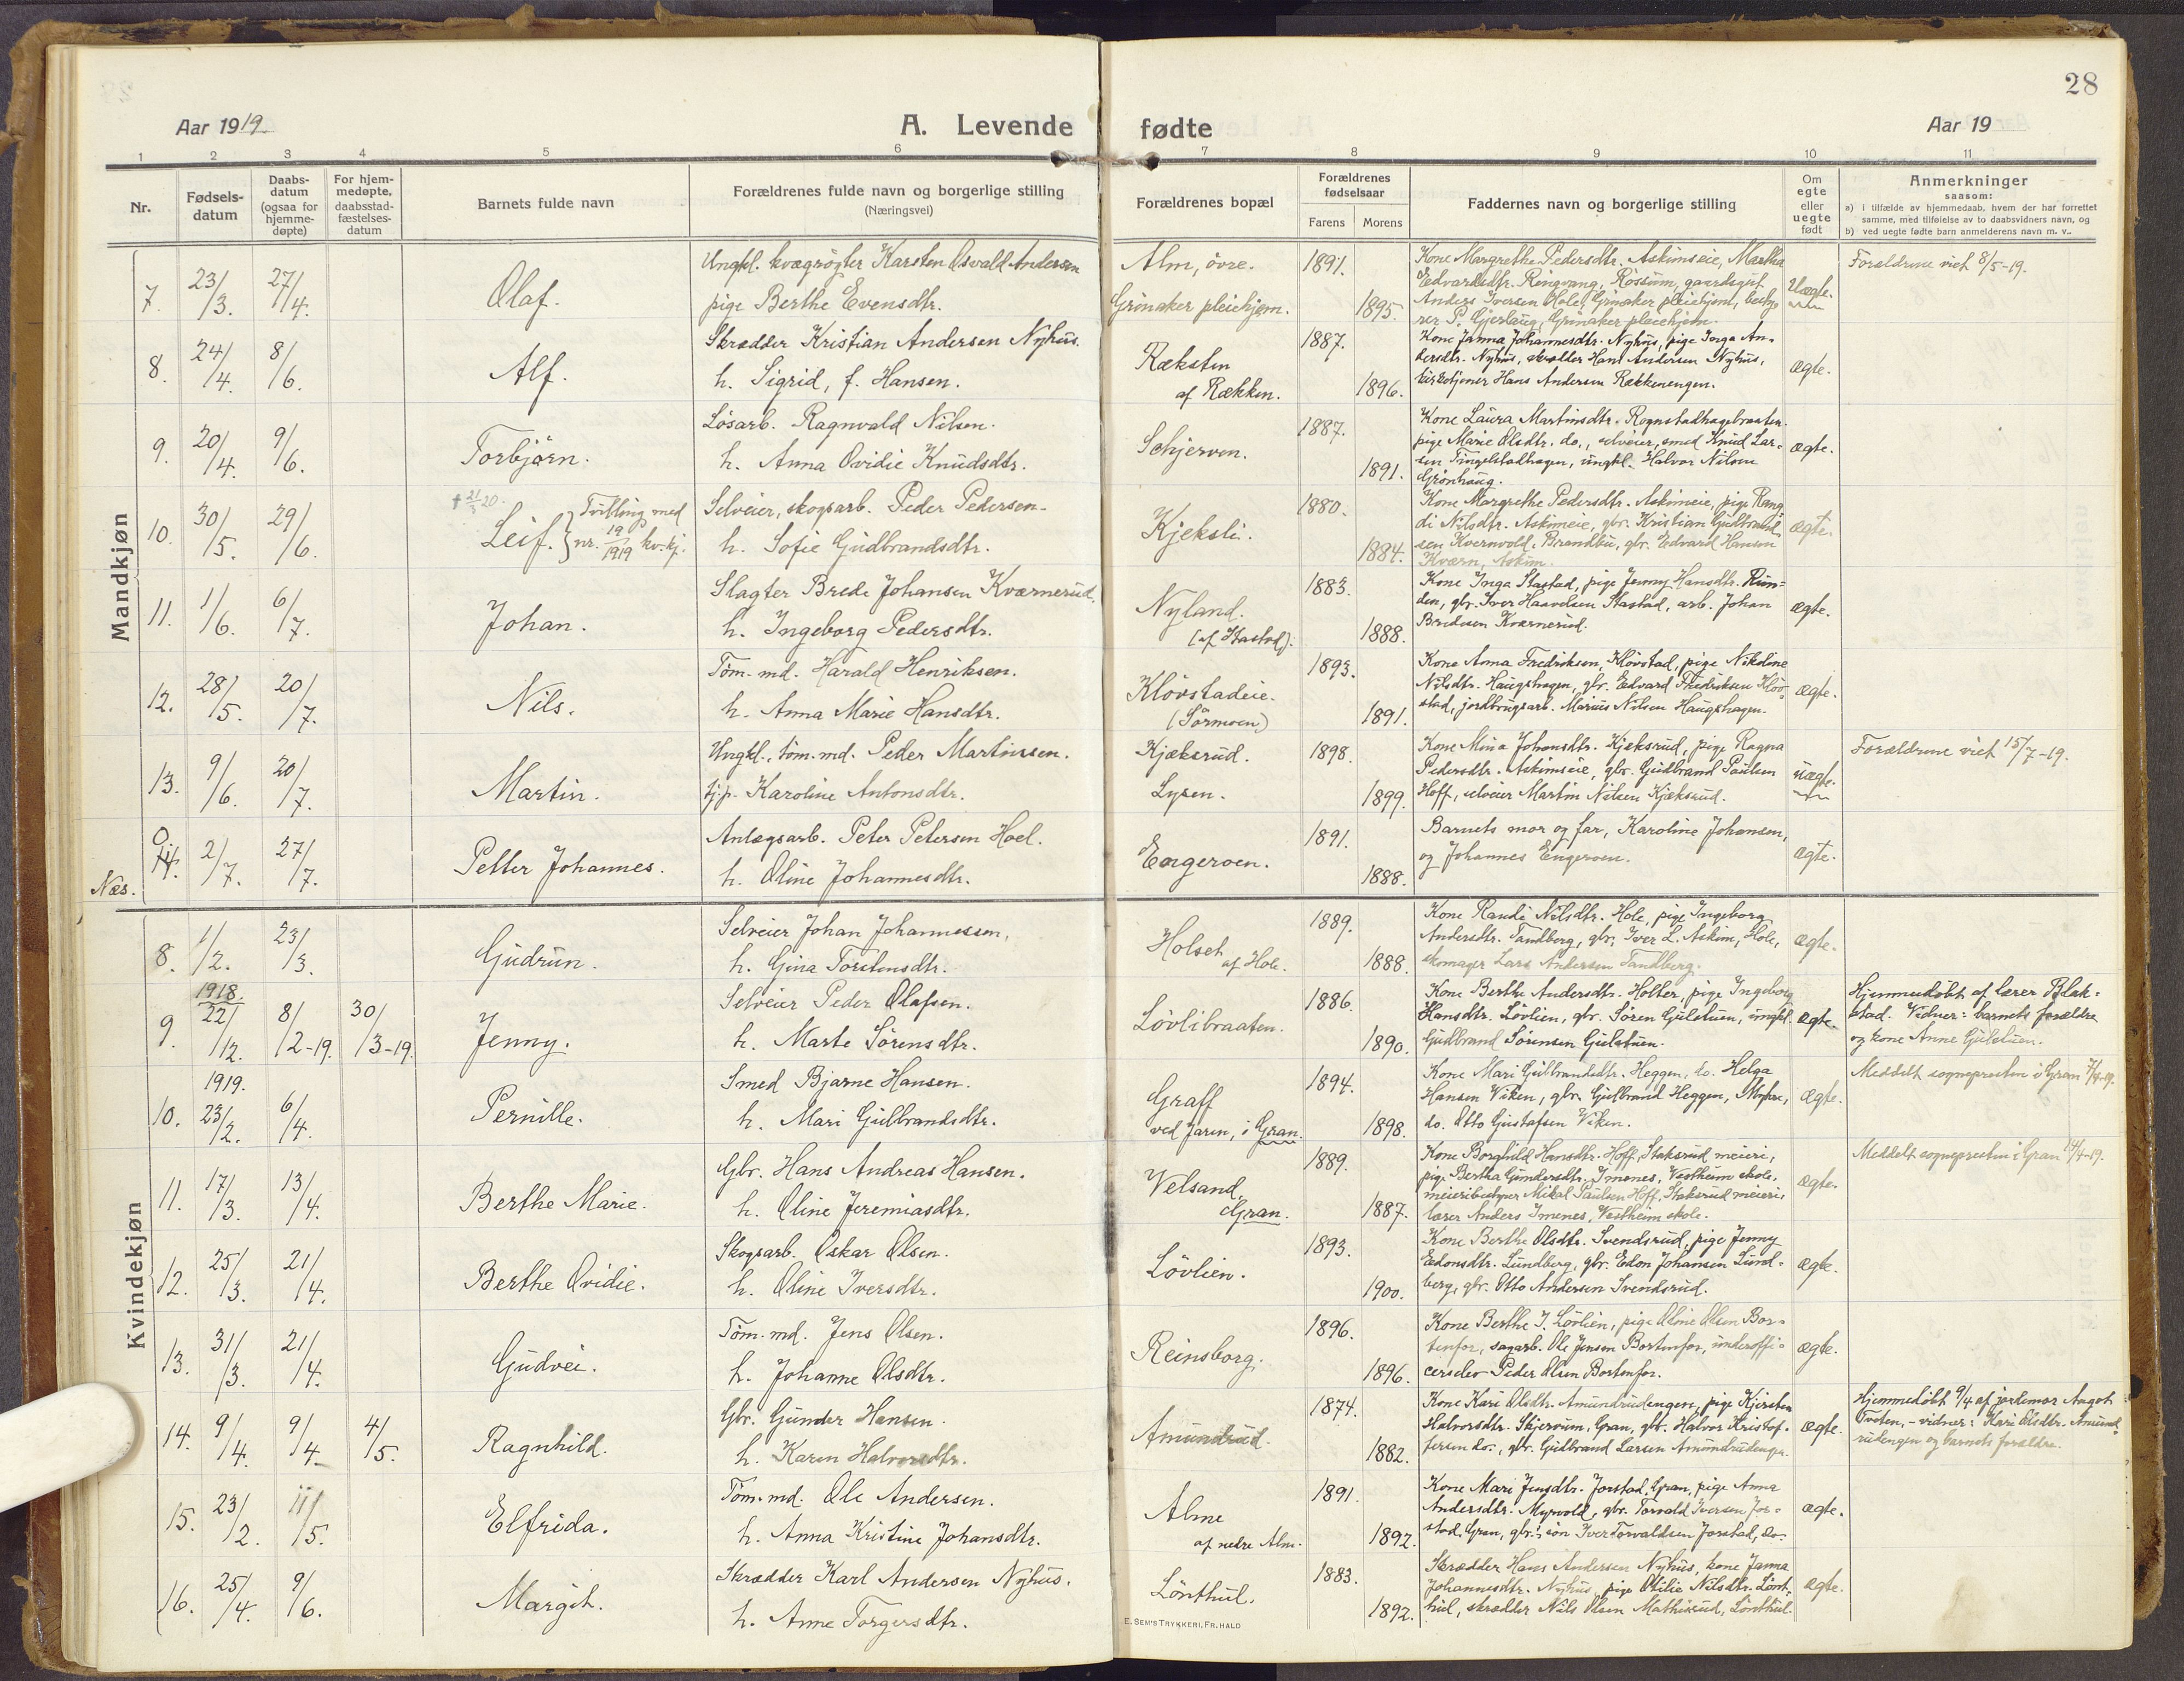 28
Aar 1919.
A. Levende fødte
Aar 19
1 2 3 4 5 6 7 8 9 10 11
Nr.
Fødsels-
datum
Daabs-
datum
(ogsaa for
hjemme-
døpte)
For hjem-
medøpte,
daabsstad-
fæstelses-
datum
Barnets fulde navn
Forældrenes fulde navn og borgerlige stilling
(Næringsvei)
Forældrenes bopæl
Forældrenes
fødselsaar
Farens Morens
Faddernes navn og borgerlige stilling
Om
egte
eller
uegte
født
Anmerkninger
saasom:
a) i tilfælde av hjemmedaab, hvem der har forrettet
samme, med tilføielse av to daabsvidners navn, og
b) ved uegte fødte barn anmelderens navn m. v..
Mandkjøn
7. 23/3. 27/4. Olaf.
Ungkl. kvægrøgter Karsten Osvald Andersen
pige Berthe Evensdtr.
Alm, övre.
Grinaker pleiehjem.
1891.
1895.
Kone Margrethe Pedersdtr. Askimseie, Martha
Edvardsdtr. Ringvang, Rossum, gaardsgut
Anders Iversen Hole, Grinaker pleiehjem, besty-
rer P. Gjerlaug, Grinaker pleiehjem.
Uægte.
Forældrene viet 8/5-19.
8. 24/4. 8/6. Alf.
Skrædder Kristian Andersen Nyhus.
h. Sigrid, f. Hansen.
Ræksten
af Rækken.
1887.
1896.
Kone Janna Johannesdtr. Nyhus, pige Inga An-
dersdtr. Nyhus, skrædder Hans Andersen Nyhus,
kirketjener Hans Andersen Rækkenengen.
ægte.
9. 20/4. 9/6. Torbjørn.
Løsarb. Ragnvald Nilsen.
h. Anna Ovidie Knudsdtr.
Schjerven.
1887.
1891.
Kone Laura Martinsdtr. Rognstadhagebraaten
pige Marie Olsdtr. do., selveier, smed Knud Lar-
sen Tingelstadhagen, ungkl. Halvor Nilsen
Grønhaug.
ægte.
10. 30/5. 29/6. † 21/5 20. Leif. } Tvilling med
nr. 19/1919 kv.kj.
Selveier, skogsarb. Peder Pedersen.
h. Sofie Gudbrandsdtr.
Kjeksli.
1880.
1884.
Kone Margrethe Pedersdtr. Askimeie, pige Rang
di Nilsdtr. Askimeie, gbr. Kristian Gudbrand
sen Kvernvold, Brandbu, gbr. Edvard Hansen
Kværn, Askim.
ægte.
11. 1/6. 6/7. Johan.
Slagter Brede Johansen Kværnerud.
h. Ingeborg Pedersdtr.
Nyland.
(af Stastad).
1883.
1888.
Kone Inga Stastad, pige Jenny Hansdtr. Run-
den, gbr. Iver Haavelsen Stastad, arb. Johan
Bredesen Kværnerud.
ægte.
12. 28/5. 20/7. Nils.
Tøm.-md. Harald Henriksen.
h. Anna Marie Hansdtr.
Kløvstadeie.
(Sørmoen)
1893.
1891.
Kone Anna Fredriksen, Kløvstad, pige Nikoline
Nilsdtr. Haugshagen, gbr. Edvard Fredriksen Kløv-
stad, jordbrugsarb. Marius Nilsen Haugshagen.
ægte.
13. 9/6. 20/7. Martin.
Ungkl., tøm.-md. Peder Martinsen.
tj.p. Karoline Antonsdtr.
Kjæksrud.
Lysen.
1898.
1899.
Kone Mina Johansdtr. Kjæksrud, pige Ragna
Pedersdtr. Askimseie, gbr. Gudbrand Paulsen
Hoff, selveier Martin Nilsen Kjæksrud.
uægte.
Forældrene viet 15/7-19.
Næs.
0 14. 2/7. 27/7. Petter Johannes.
Anlægsarb. Peter Petersen Hoel.
h. Oline Johannesdtr.
Engeroen.
1891.
1888.
Barnets mor og far, Karoline Johansen,
og Johannes Engeroen.
ægte.
Kvindekjøn
8. 1/2. 23/3. Gudrun.
Selveier Johan Johannessen,
h. Gina Torstensdtr.
Holset
af Hole.
1889.
1888.
Kone Randi Nilsdtr. Hole, pige Ingeborg
Andersdtr. Tandberg, gbr. Iver L. Askim, Hole,
skomager Lars Andersen Tandberg.
ægte.
9. 1918. 22/12. 8/2-19. 30/3-19. Jenny.
Selveier Peder Olafsen.
h. Marte Sørensdtr.
Løvlibraaten.
1886.
1890.
Kone Berthe Andersdtr. Holter, pige Ingeborg
Hansdtr. Løvlien, gbr. Søren Gulstuen, ungkl.
Gudbrand Sørensen Gulstuen.
ægte.
Hjemmedøbt af lærer Blak-
stad. Vidner: barnets forældre
og kone Anne Gulstuen.
10. 1919. 23/2. 6/4. Pernille.
Smed Bjarne Hansen.
h. Mari Gulbrandsdtr.
Graff
ved Jaren, i Gran.
1894.
1898.
Kone Mari Gulbrandsdtr. Heggen, do. Helga
Hansen Viken, gbr. Gulbrand Heggen,
do. Otto Gustafsen Viken.
ægte.
Meddelt sognepresten i Gran 7/4-19.
11. 17/3. 13/4. Berthe Marie.
Gbr. Hans Andreas Hansen.
h. Oline Jeremiasdtr.
Velsand,
Gran.
1889.
1887.
Kone Borghild Hansdtr. Hoff, Staksrud meieri,
pige Bertha Gundersdtr. Imenes, Vestheim skole,
meieribestyrer Mikal Paulsen Hoff, Staksrud meieri,
lærer Anders Imenes, Vestheim skole.
ægte.
Meddelt sognepresten i Gran 14/4-19.
12. 25/3. 21/4. Berthe Ovidie.
Skogsarb. Oskar Olsen.
h. Oline Iversdtr.
Løvlien.
1893.
1900.
Kone Berthe Olsdtr. Svendsrud, pige Jenny
Edonsdtr. Lundberg, gbr. Edon Johansen Lund-
berg, gbr. Otto Andersen Svendsrud.
ægte.
13. 31/3. 21/4. Gudvei.
Tøm.-md. Jens Olsen.
h. Johanne Olsdtr.
Reinsborg.
1896.
1896.
Kone Berthe J. Løvlien, pige Oline Olsen Bor-
tenfor, sagarb. Ole Jensen Bortenfor, underoffi-
cerselev Peder Olsen Bortenfor.
ægte.
14. 9/4. 9/4. 4/5. Ragnhild.
Gbr. Gunder Hansen.
h. Karen Halvorsdtr.
Amundrud.
1874.
1882.
Kone Kari Olsdtr. Amundrudengen, pige Kjersten
Halvorsdtr. Skjervum, Gran, gbr. Halvor Kristof-
fersen do., gbr. Gudbrand Larsen Amundrudengen.
ægte.
Hjemmedøbt 9/4 af jordemor Aagot
Tveten, - vidner: Kari Olsdtr. Amund
rudengen og barnets forældre.
15. 23/2. 11/5. Elfrida.
Tøm.-md. Ole Andersen.
h. Anna Kristine Johansdtr.
Alme
af nedre Alm.
1891.
1892.
Kone Mari Jensdtr. Jorstad, Gran, pige Anna
Andersdtr. Myrvold, gbr. Torvald Iversen Jor-
stad, Gran, gbr. søn Iver Torvaldsen Jorstad, do.
ægte.
16. 25/4. 9/6. Margit.
Skrædder Karl Andersen Nyhus.
h. Anne Torgersdtr.
Lønthul.
1883.
1892.
Skrædder Hans Andersen Nyhus, kone Janna
Johannesdtr. Nyhus, pige Otilie Nilsdtr. Lønt-
hul, skrædder Nils Olsen Mathisrud, Lønthul.
ægte.
E. SEM'S TRYKKERI, FR.HALD